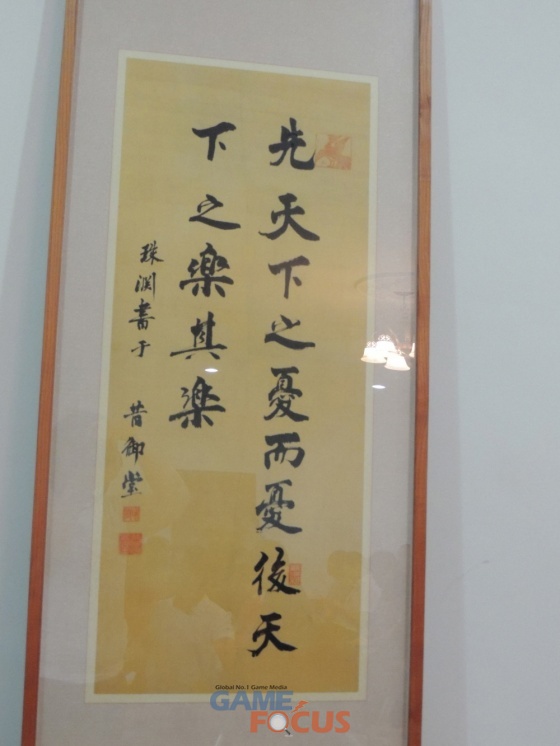 先天下之憂而憂後天
下之樂其楽
珠渕書于 昔御堂
Global No.1 Game Media
GAME
FOCUS